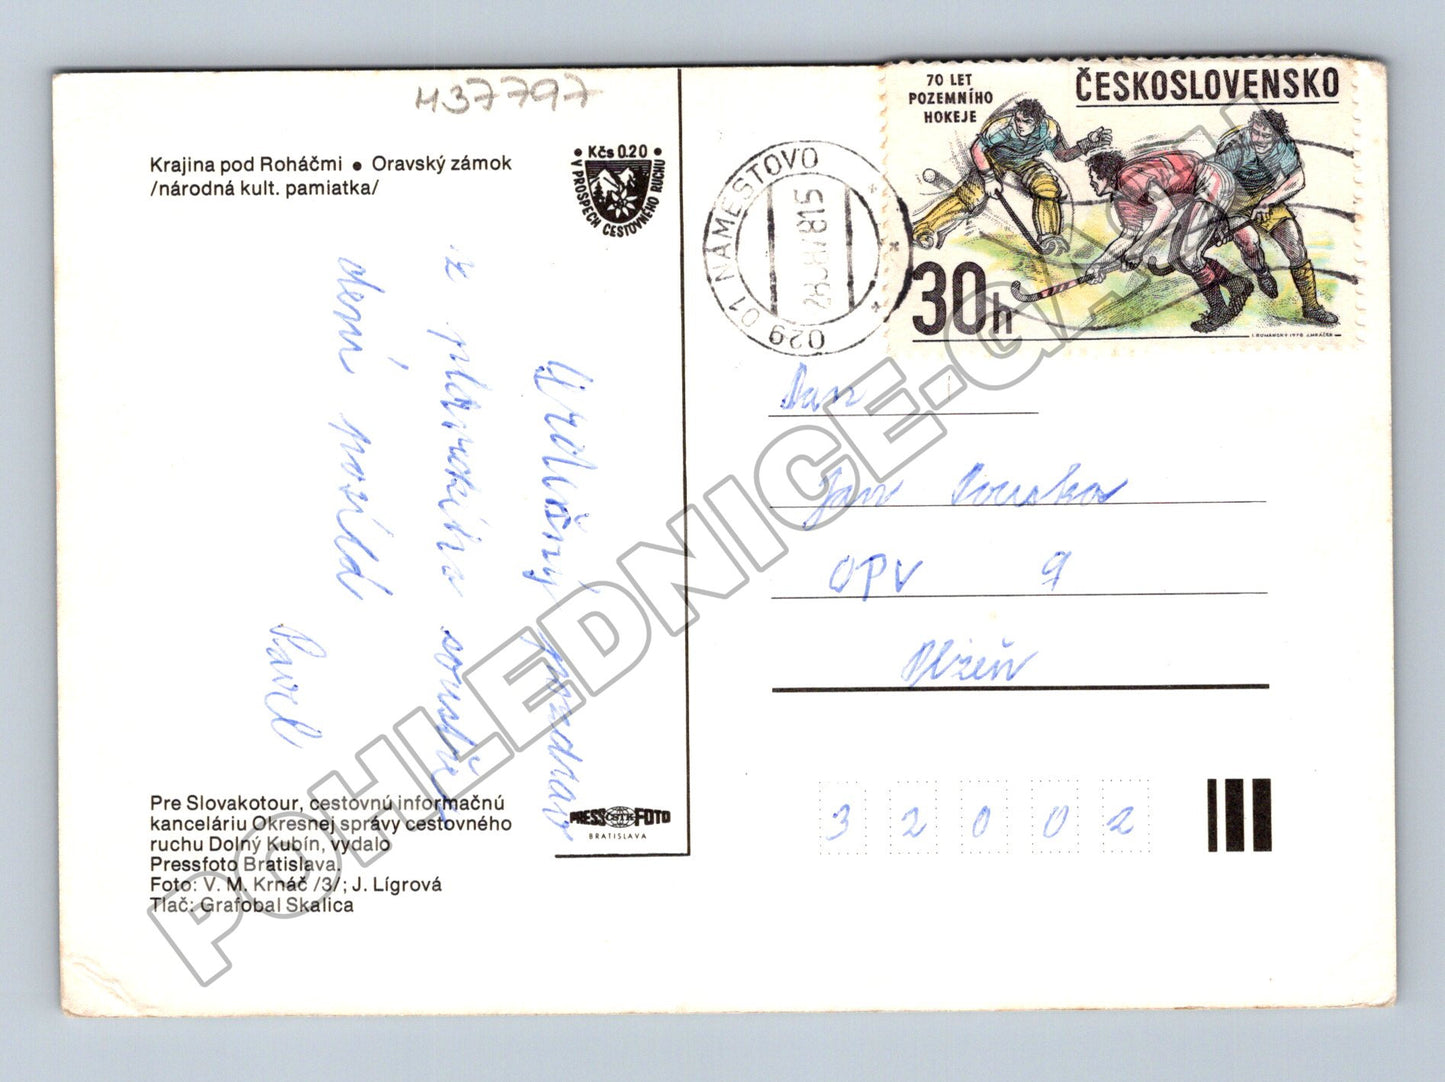 437797
Krajina pod Roháčmi • Oravský zámok
/národná kult. pamiatka/
• Kčs 0.20 •
V PROSPECH CESTOVNÉHO RUCHU
Srdečný pozdrav
z plaveckého soustř.
posílá
Pavel
Pre Slovakotour, cestovnú informačnú
kanceláriu Okresnej správy cestovného
ruchu Dolný Kubín, vydalo
Pressfoto Bratislava.
Foto: V. M. Krnáč /3/; J. Lígrová
Tlač: Grafobal Skalica
PRESS ČSTK FOTO
BRATISLAVA
029 01 NÁMESTOVO
70 LET
POZEMNÍHO
HOKEJE
ČESKOSLOVENSKO
30h
Pan
Jan
OPV 9
Plzeň
32002
POHLEDNICE-CASH